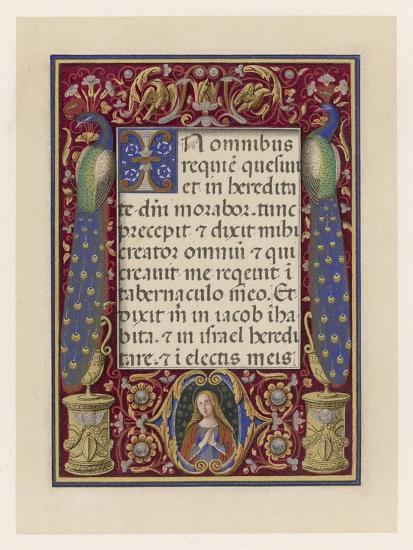 IN omnibus
requiē quesiui
et in heredita
te dn̄i morabor. tunc
precepit et dixit mihi
creator omniū et qui
creauit me requiuit ī
tabernaculo meo. Et
dixit m̄ in iacob īha
bita. et in israel heredi
tare. et ī electis meis